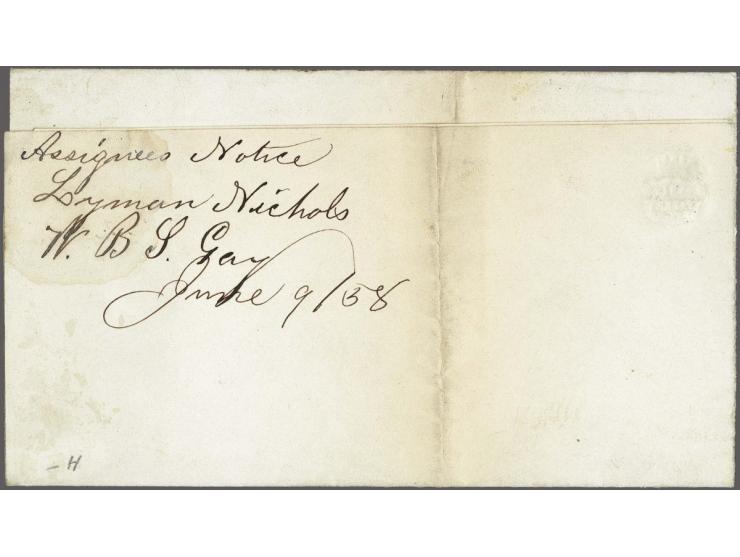 Assignees Notice
Lyman Nichols
W. B S. Gay
June 9/58
– H